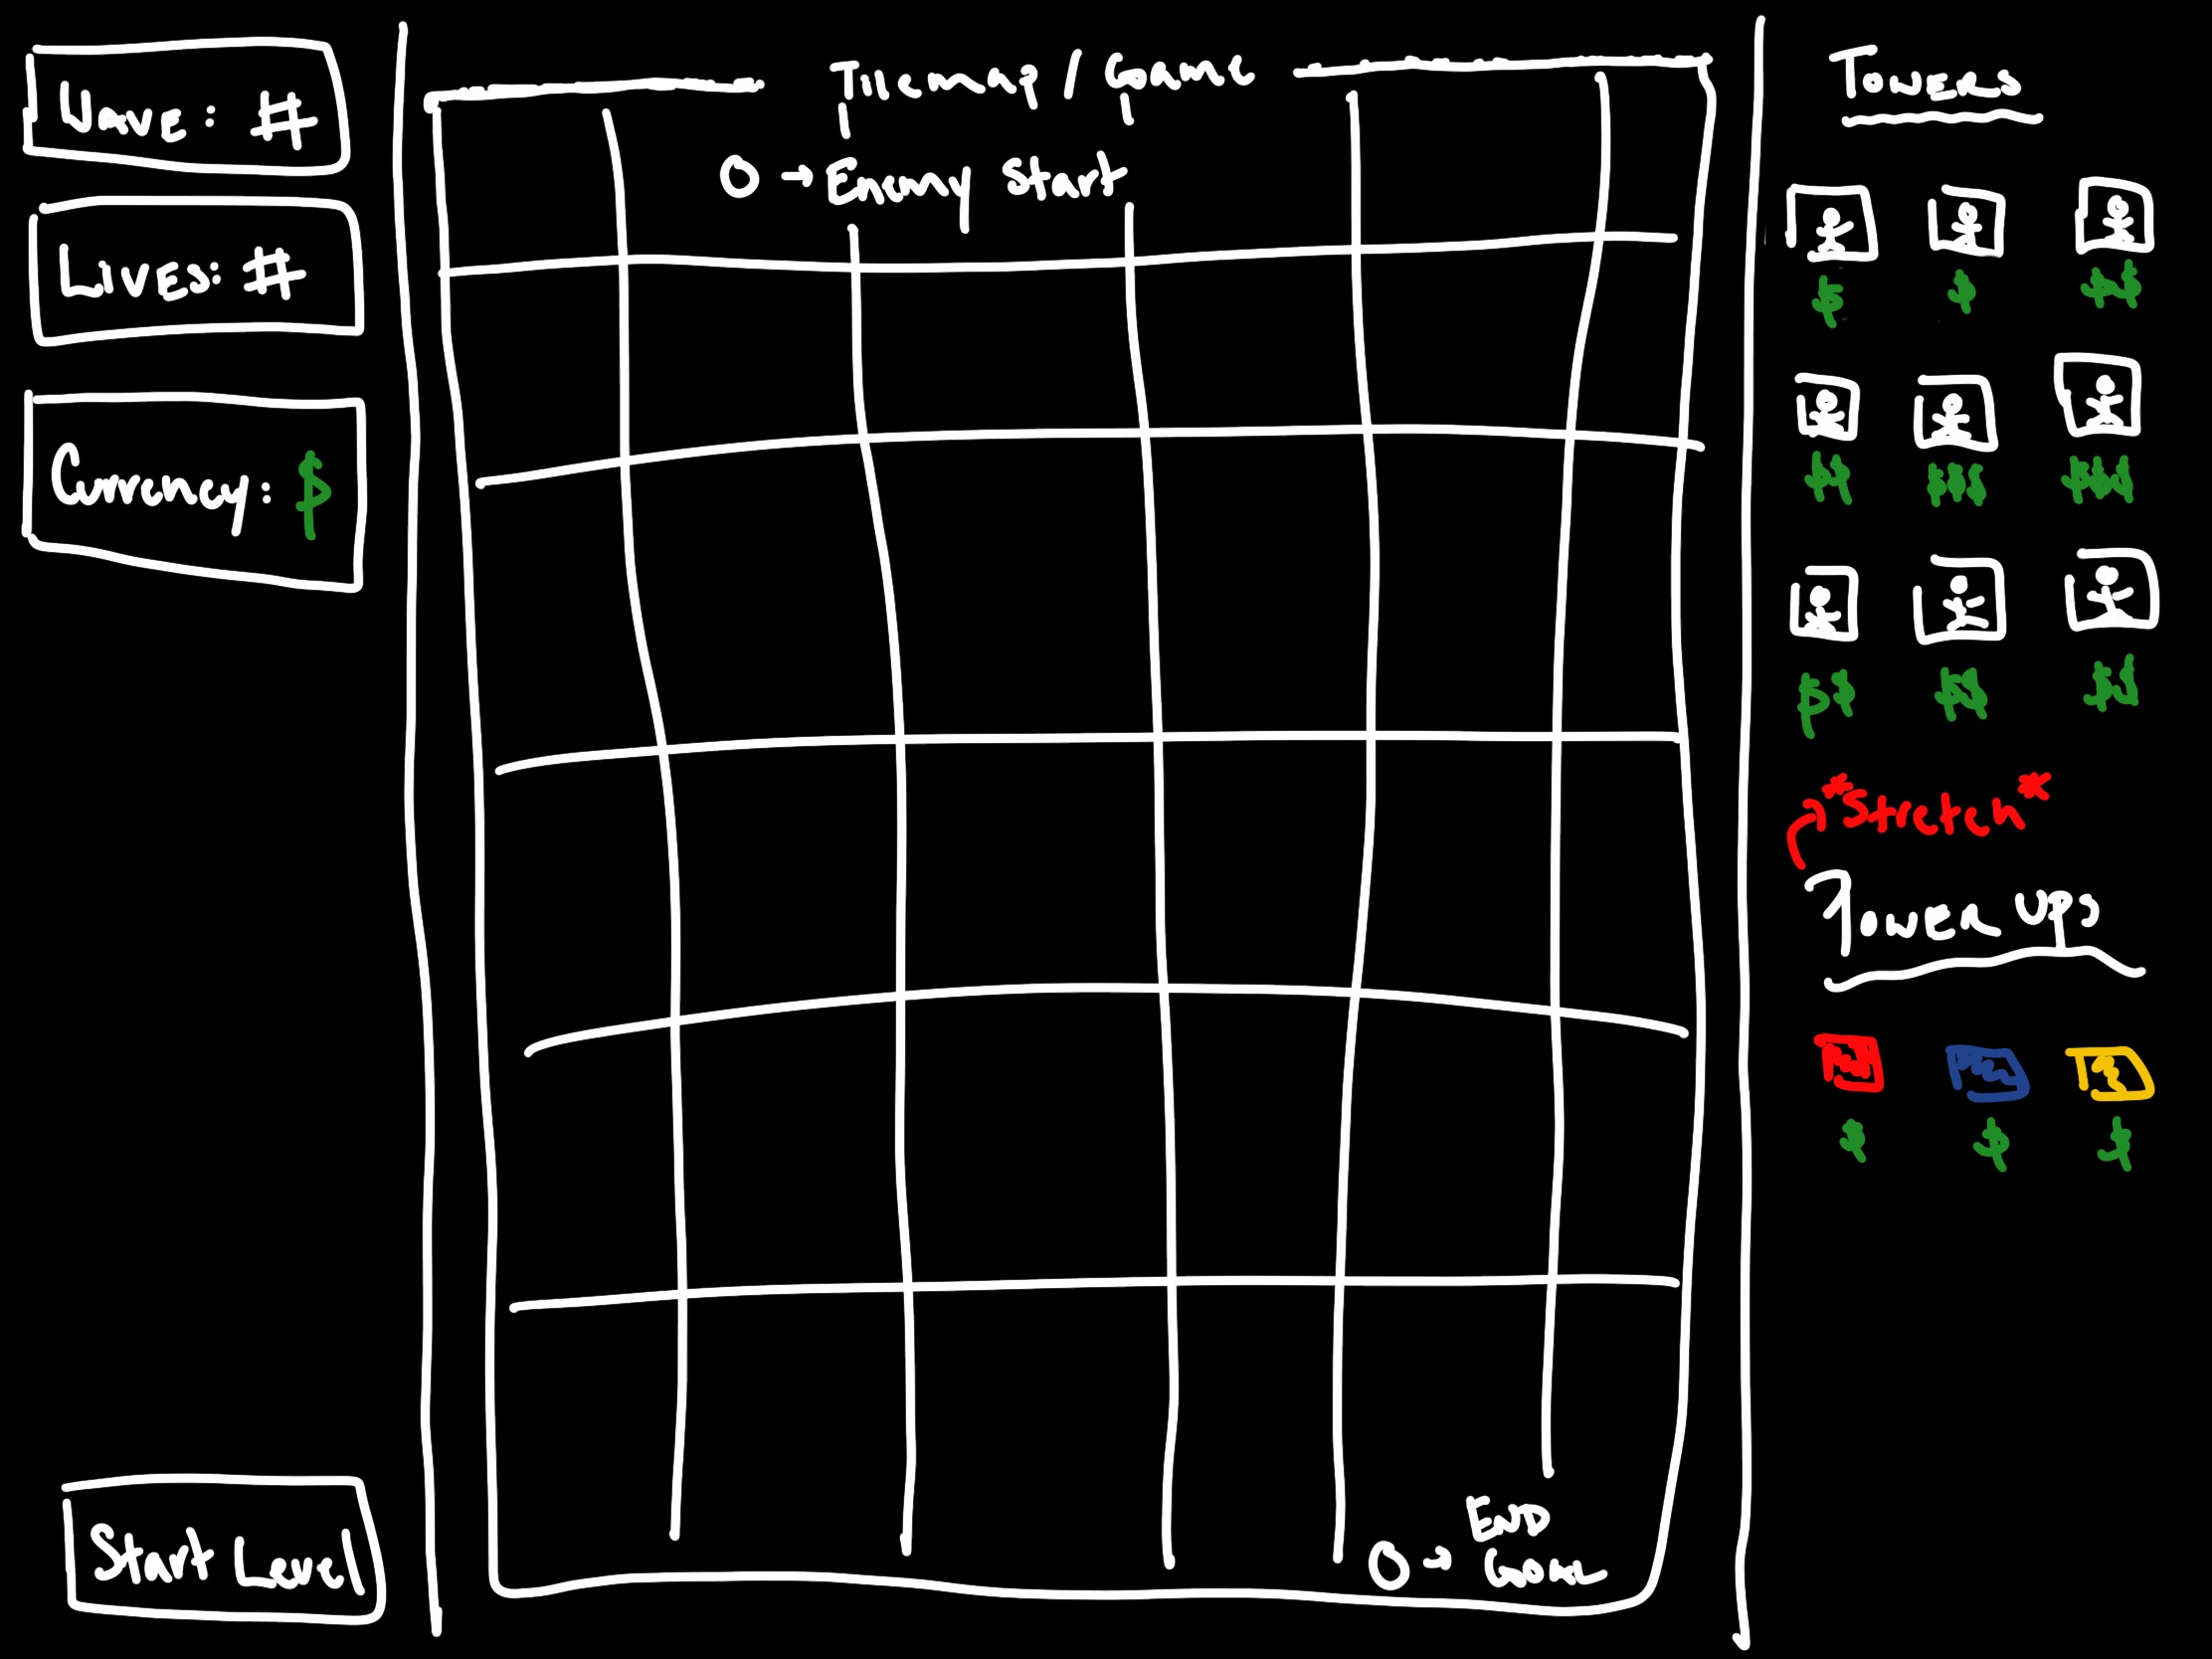 Wave: #
Lives: #
Currency: $
Start Level
Tilemap / Game
O → Enmy Start
END
O → GOAL
Towers
$ $ $$
$$ $$$ $$$
$$ $$ $$
*Stretch*
Power UPs
$ $ $